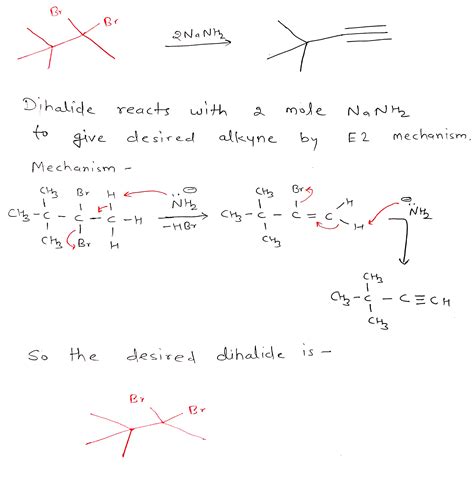 Br
Br
2NaNH2
Dihalide reacts with 2 mole NaNH2
to give desired alkyne by E2 mechanism.
Mechanism -
CH3 Br H
CH3 - C - C - C - H
CH3 Br H
⊖
NH2
-HBr
CH3 Br
CH3 - C - C = C
H
H
CH3
⊖
NH2
CH3
CH3 - C - C ≡ CH
CH3
So the desired dihalide is -
Br
Br